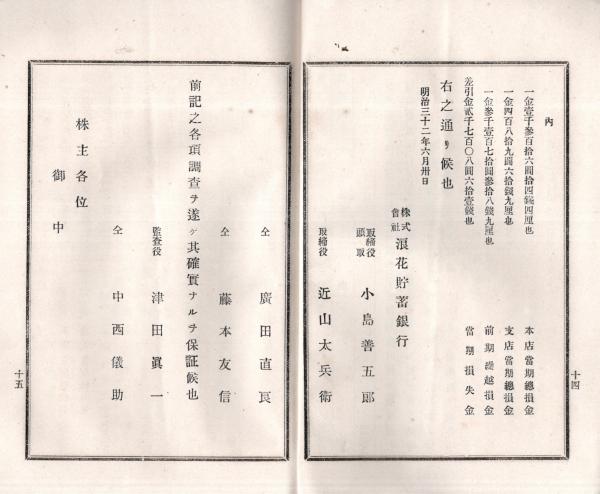 內
一金壹千參百拾六圓拾四錢四厘也 本店當期總損金
一金四百八拾九圓六拾錢九厘也 支店當期總損金
一金參千壹百七拾圓參拾八錢九厘也 前期繰越損金
差引金貳千七百〇八圓六拾壹錢也 當期損失金
右之通リ候也
明治三十二年六月卅日
株式會社浪花貯蓄銀行
取締役頭取 小島善五郎
取締役 近山太兵衛
十四
仝 廣田直良
仝 藤本友信
前記之各項調查ヲ遂ゲ其確實ナルヲ保証候也
監查役 津田眞一
仝 中西儀助
株主各位
御中
十五